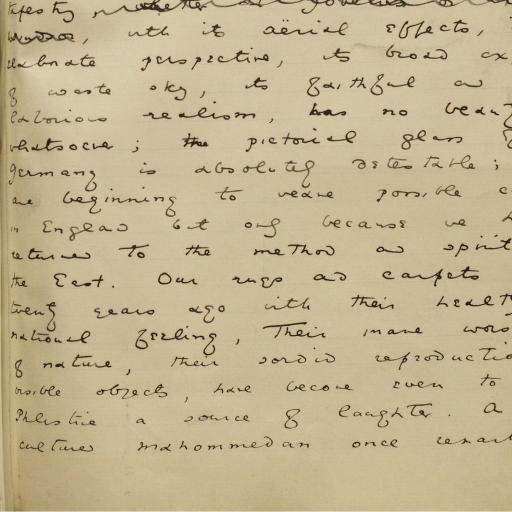 tapestry, whether
with its aërial effects,
elaborate perspective, its broad ex
of waste sky, its faithful and
laborious realism, has no beauty
whatsoever; the pictorial glass of
Germany is absolutely detestable;
are beginning to weave possible c
in England but only because we h
returned to the method and spirit
the East. Our rugs and carpets
twenty years ago with their healthy
national feeling, their inane wors
of nature, their sordid reproductio
visible objects, have become even to
Philistine a source of laughter. A
cultured Mahommedan once remark